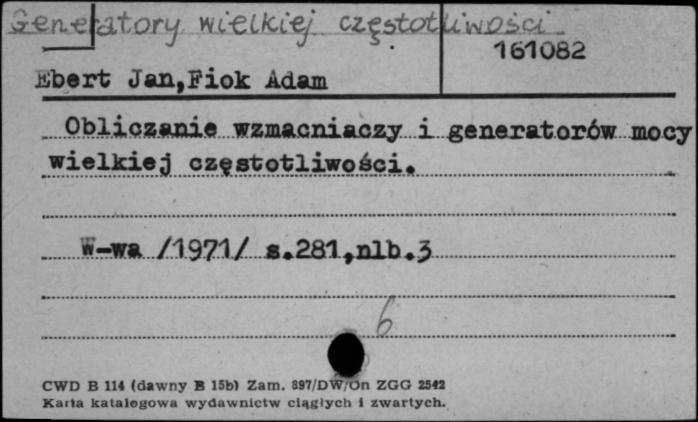 Generatory wielkiej częstotliwości
161082
Ebert Jan,Fiok Adam
Obliczanie wzmacniaczy i generatorów mocy
wielkiej częstotliwości.
W-wa /1971/ s.281,nlb.3
6
CWD B 114 (dawny B 15b) Zam. 897/DW/On ZGG 2542
Karta katalogowa wydawnictw ciągłych i zwartych.